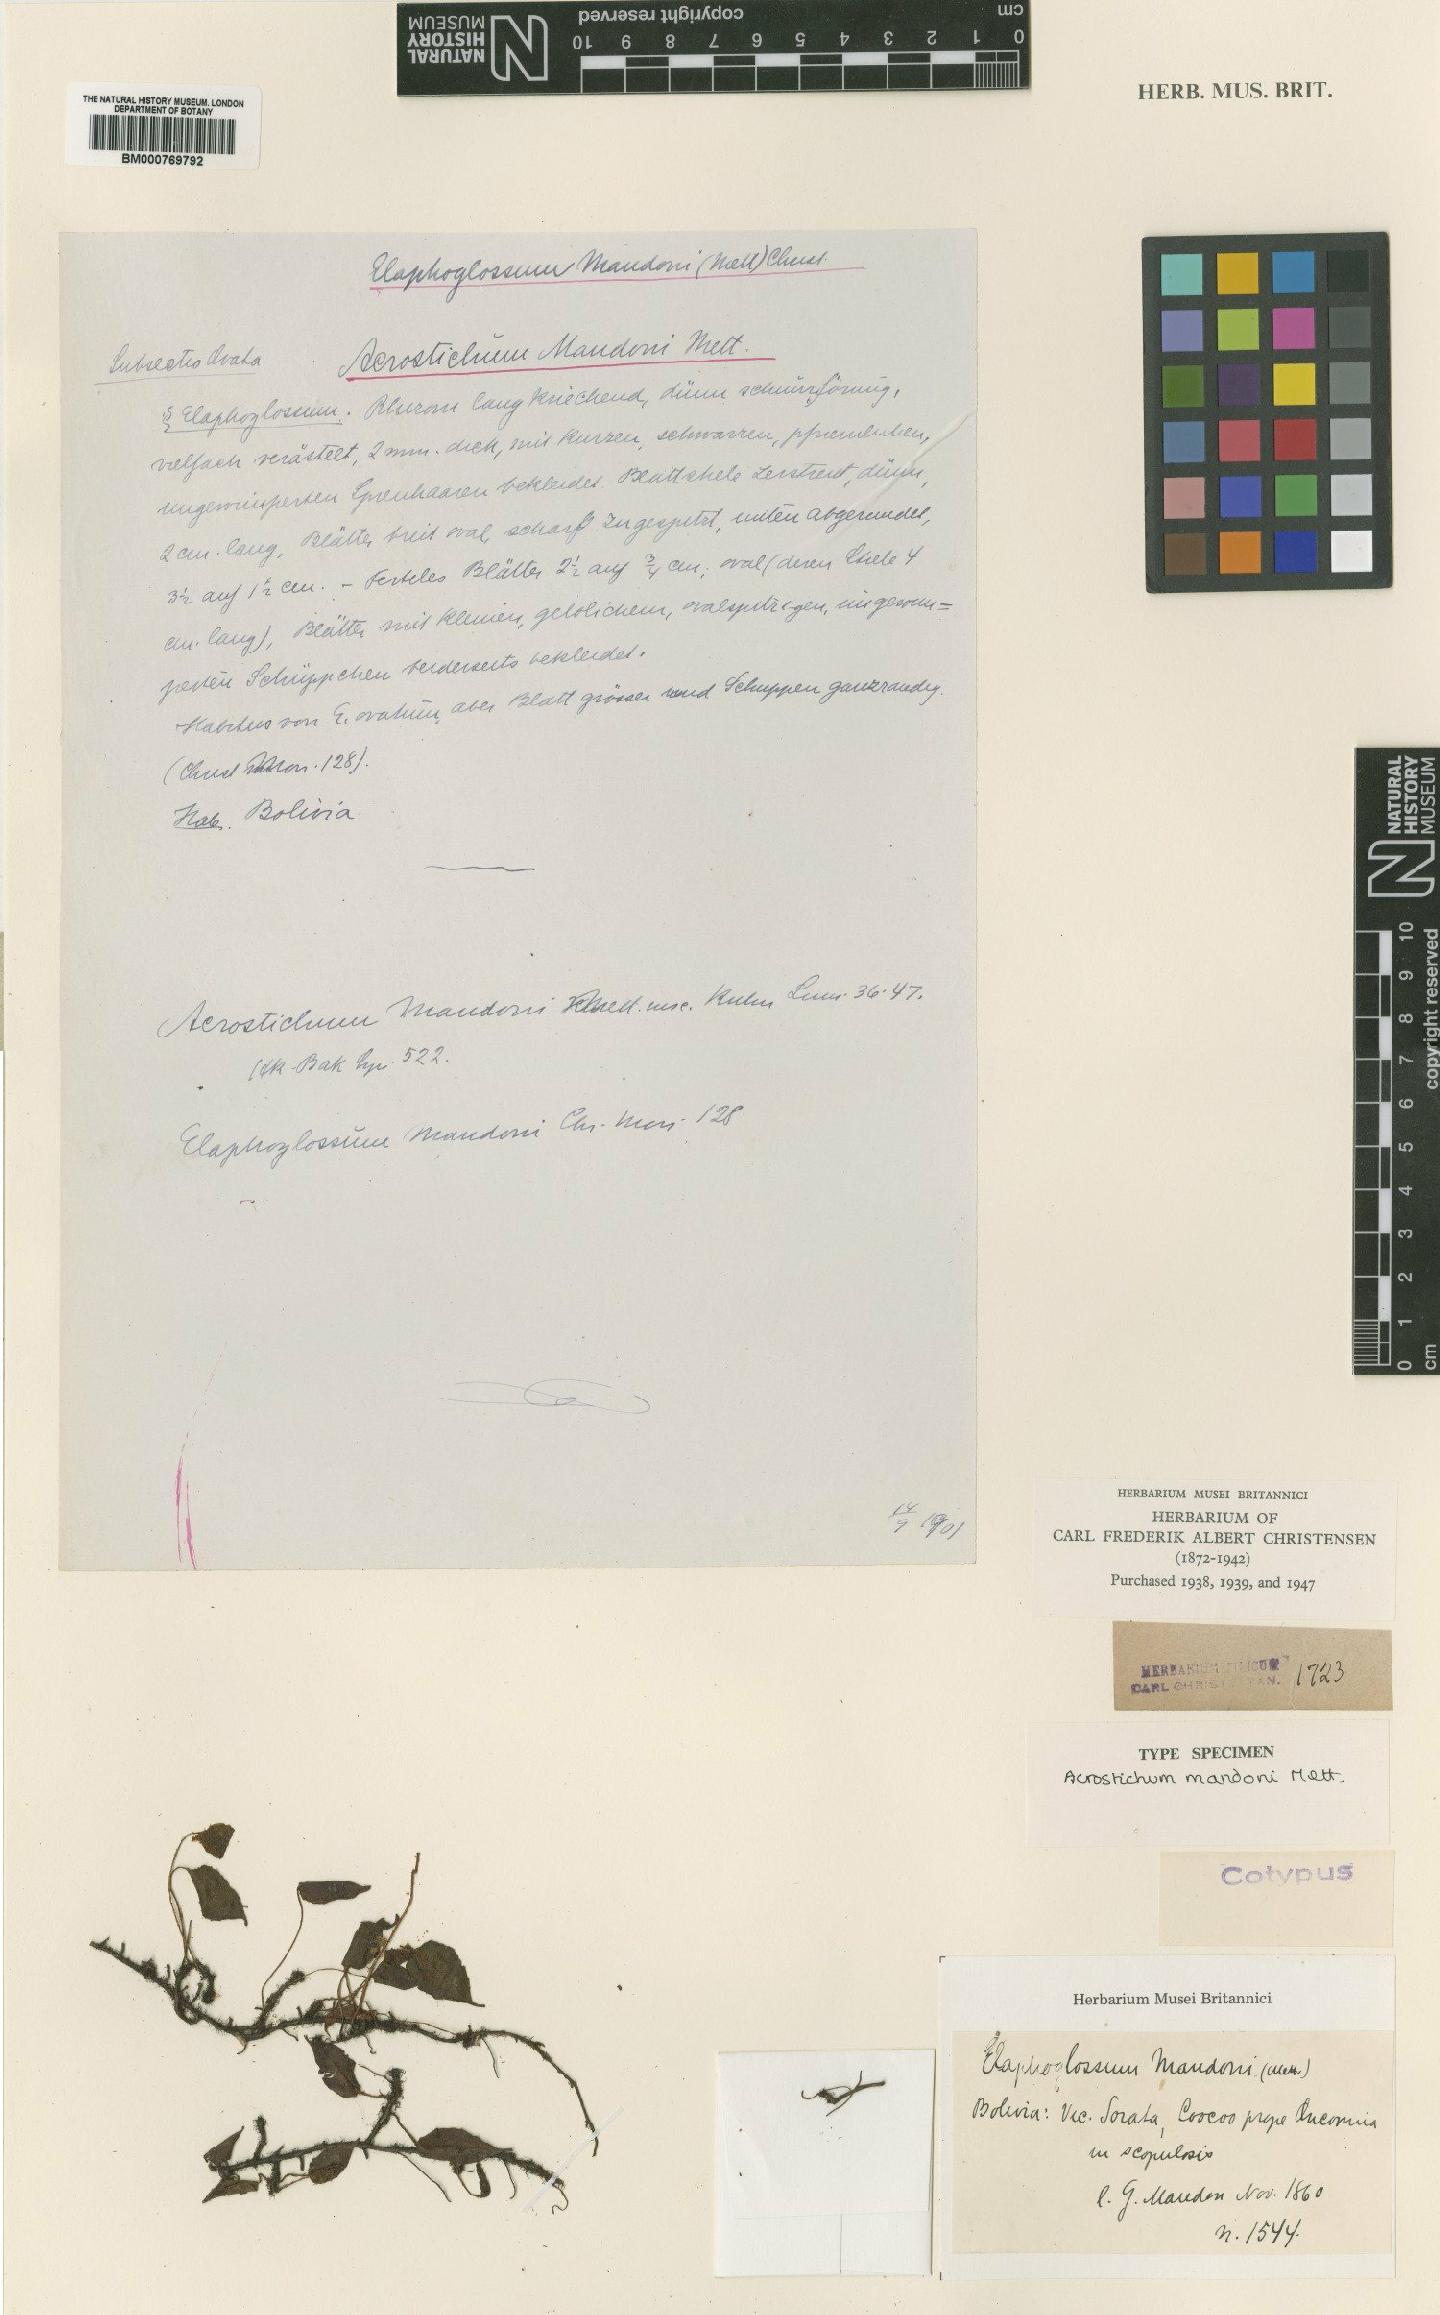 NATURAL
HISTORY
MUSEUM
copyright reserved
cm
0 1 2 3 4 5 6 7 8 9 10
HERB. MUS. BRIT.
THE NATURAL HISTORY MUSEUM, LONDON
DEPARTMENT OF BOTANY
BM000769792
Elaphoglossum Mandoni (Mett) Christ.
Subsectio Ovata
Acrostichum Mandoni Mett.
§ Elaphoglossum. Rhizom lang kriechend, dünn schnürförmig,
vielfach verästelt, 2 mm. dick, mit kurzen, schwarzen, pfriemlichen,
ungewimperten Spreuhaaren bekleidet. Blattstiele zerstreut, dünn,
2 cm. lang, Blätter breit oval, scharf zugespitzt, unten abgerundet,
3½ auf 1½ cm. – Fertiles Blätter 2½ auf ¾ cm; oval (deren Stiele 4
cm. lang), Blätter mit kleinen, gelblichen, ovalspitzigen, ungewim=
perten Schüppchen beiderseits bekleidet.
Habitus von E. ovatum, aber Blatt grösser und Schuppen ganzrandig.
(Christ Mon. 128).
Hab. Bolivia
Acrostichum Mandoni Mett. msc. Kuhn Linn. 36. 47.
Hk Bak Syn. 522.
Elaphoglossum Mandoni Chr. Mon. 128
14/9 1901
NATURAL
HISTORY
MUSEUM
copyright reserved
cm
0 1 2 3 4 5 6 7 8 9 10
HERBARIUM MUSEI BRITANNICI
HERBARIUM OF
CARL FREDERIK ALBERT CHRISTENSEN
(1872-1942)
Purchased 1938, 1939, and 1947
HERBARIUM FILICUM
CARL CHRISTENSEN. 1723
TYPE SPECIMEN
Acrostichum mandoni Mett.
Cotypus
Herbarium Musei Britannici
Elaphoglossum Mandoni
Bolivia: Vic. Sorata, Coocoo prope
in scopulosis
l. G. Mandon Nov. 1860
n. 1544.